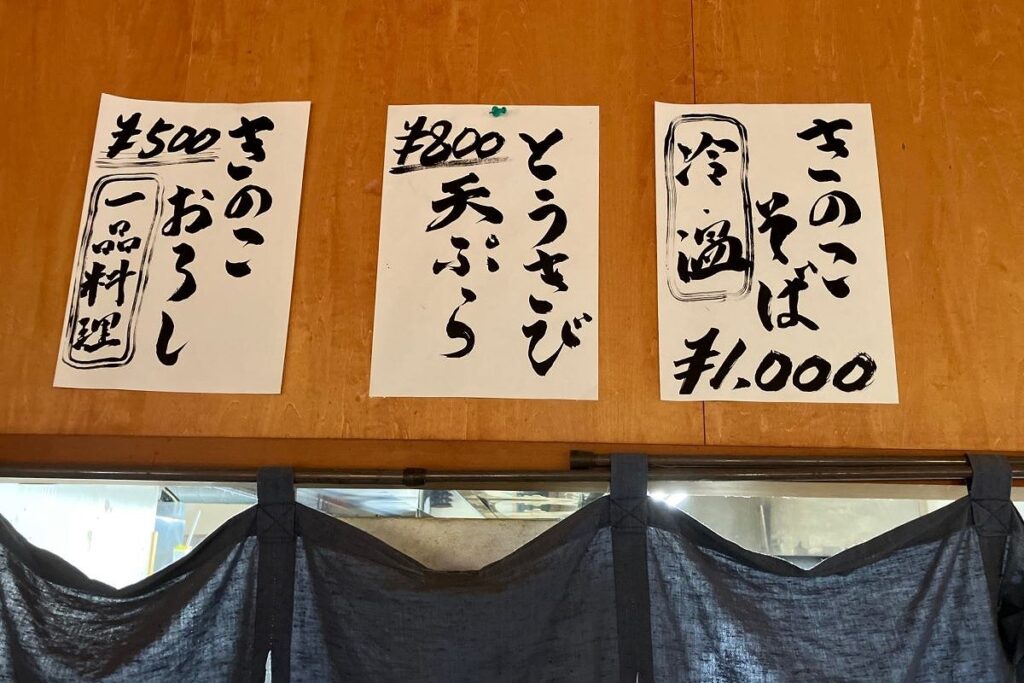 きのこ
そば
冷 温
¥1,000
とうきび
天ぷら
¥800
きのこ
おろし
¥500
一品料理